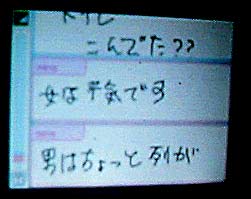 トイレ
こんでた??
女は平気です
男はちょっと列が